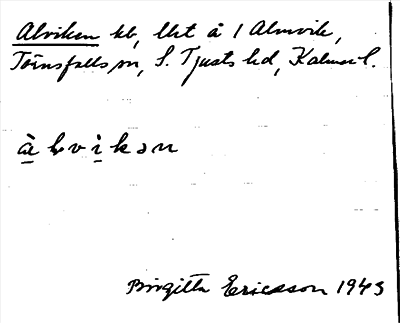 Alviken kb, lht å 1 Almvik,
Törnsfalls sn, S. Tjusts hd, Kalmar l.
àlvìkən
Birgitta Ericsson 1943